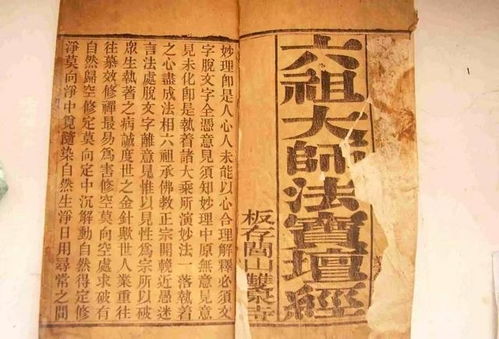 六祖大師法寶壇經
板存閭山雙寺
妙理卽是人心人未能以心合理解釋必須文
字脫文字全憑意見須知妙理中原無意見意
見未化卽是執着諸大乘所演妙法一落執着
之心盡成法相六祖承佛教正宗開近愚迷
言法處脫文字離意見惟以見性爲宗所以破
衆生執著之病誠度世之金針歎世人業重往
往慕效修禪最易爲害修空莫向空處求破有
自然歸空修定莫向定中沉解動自然得定修
淨莫向淨中覓隨染自然生淨日用尋常之間